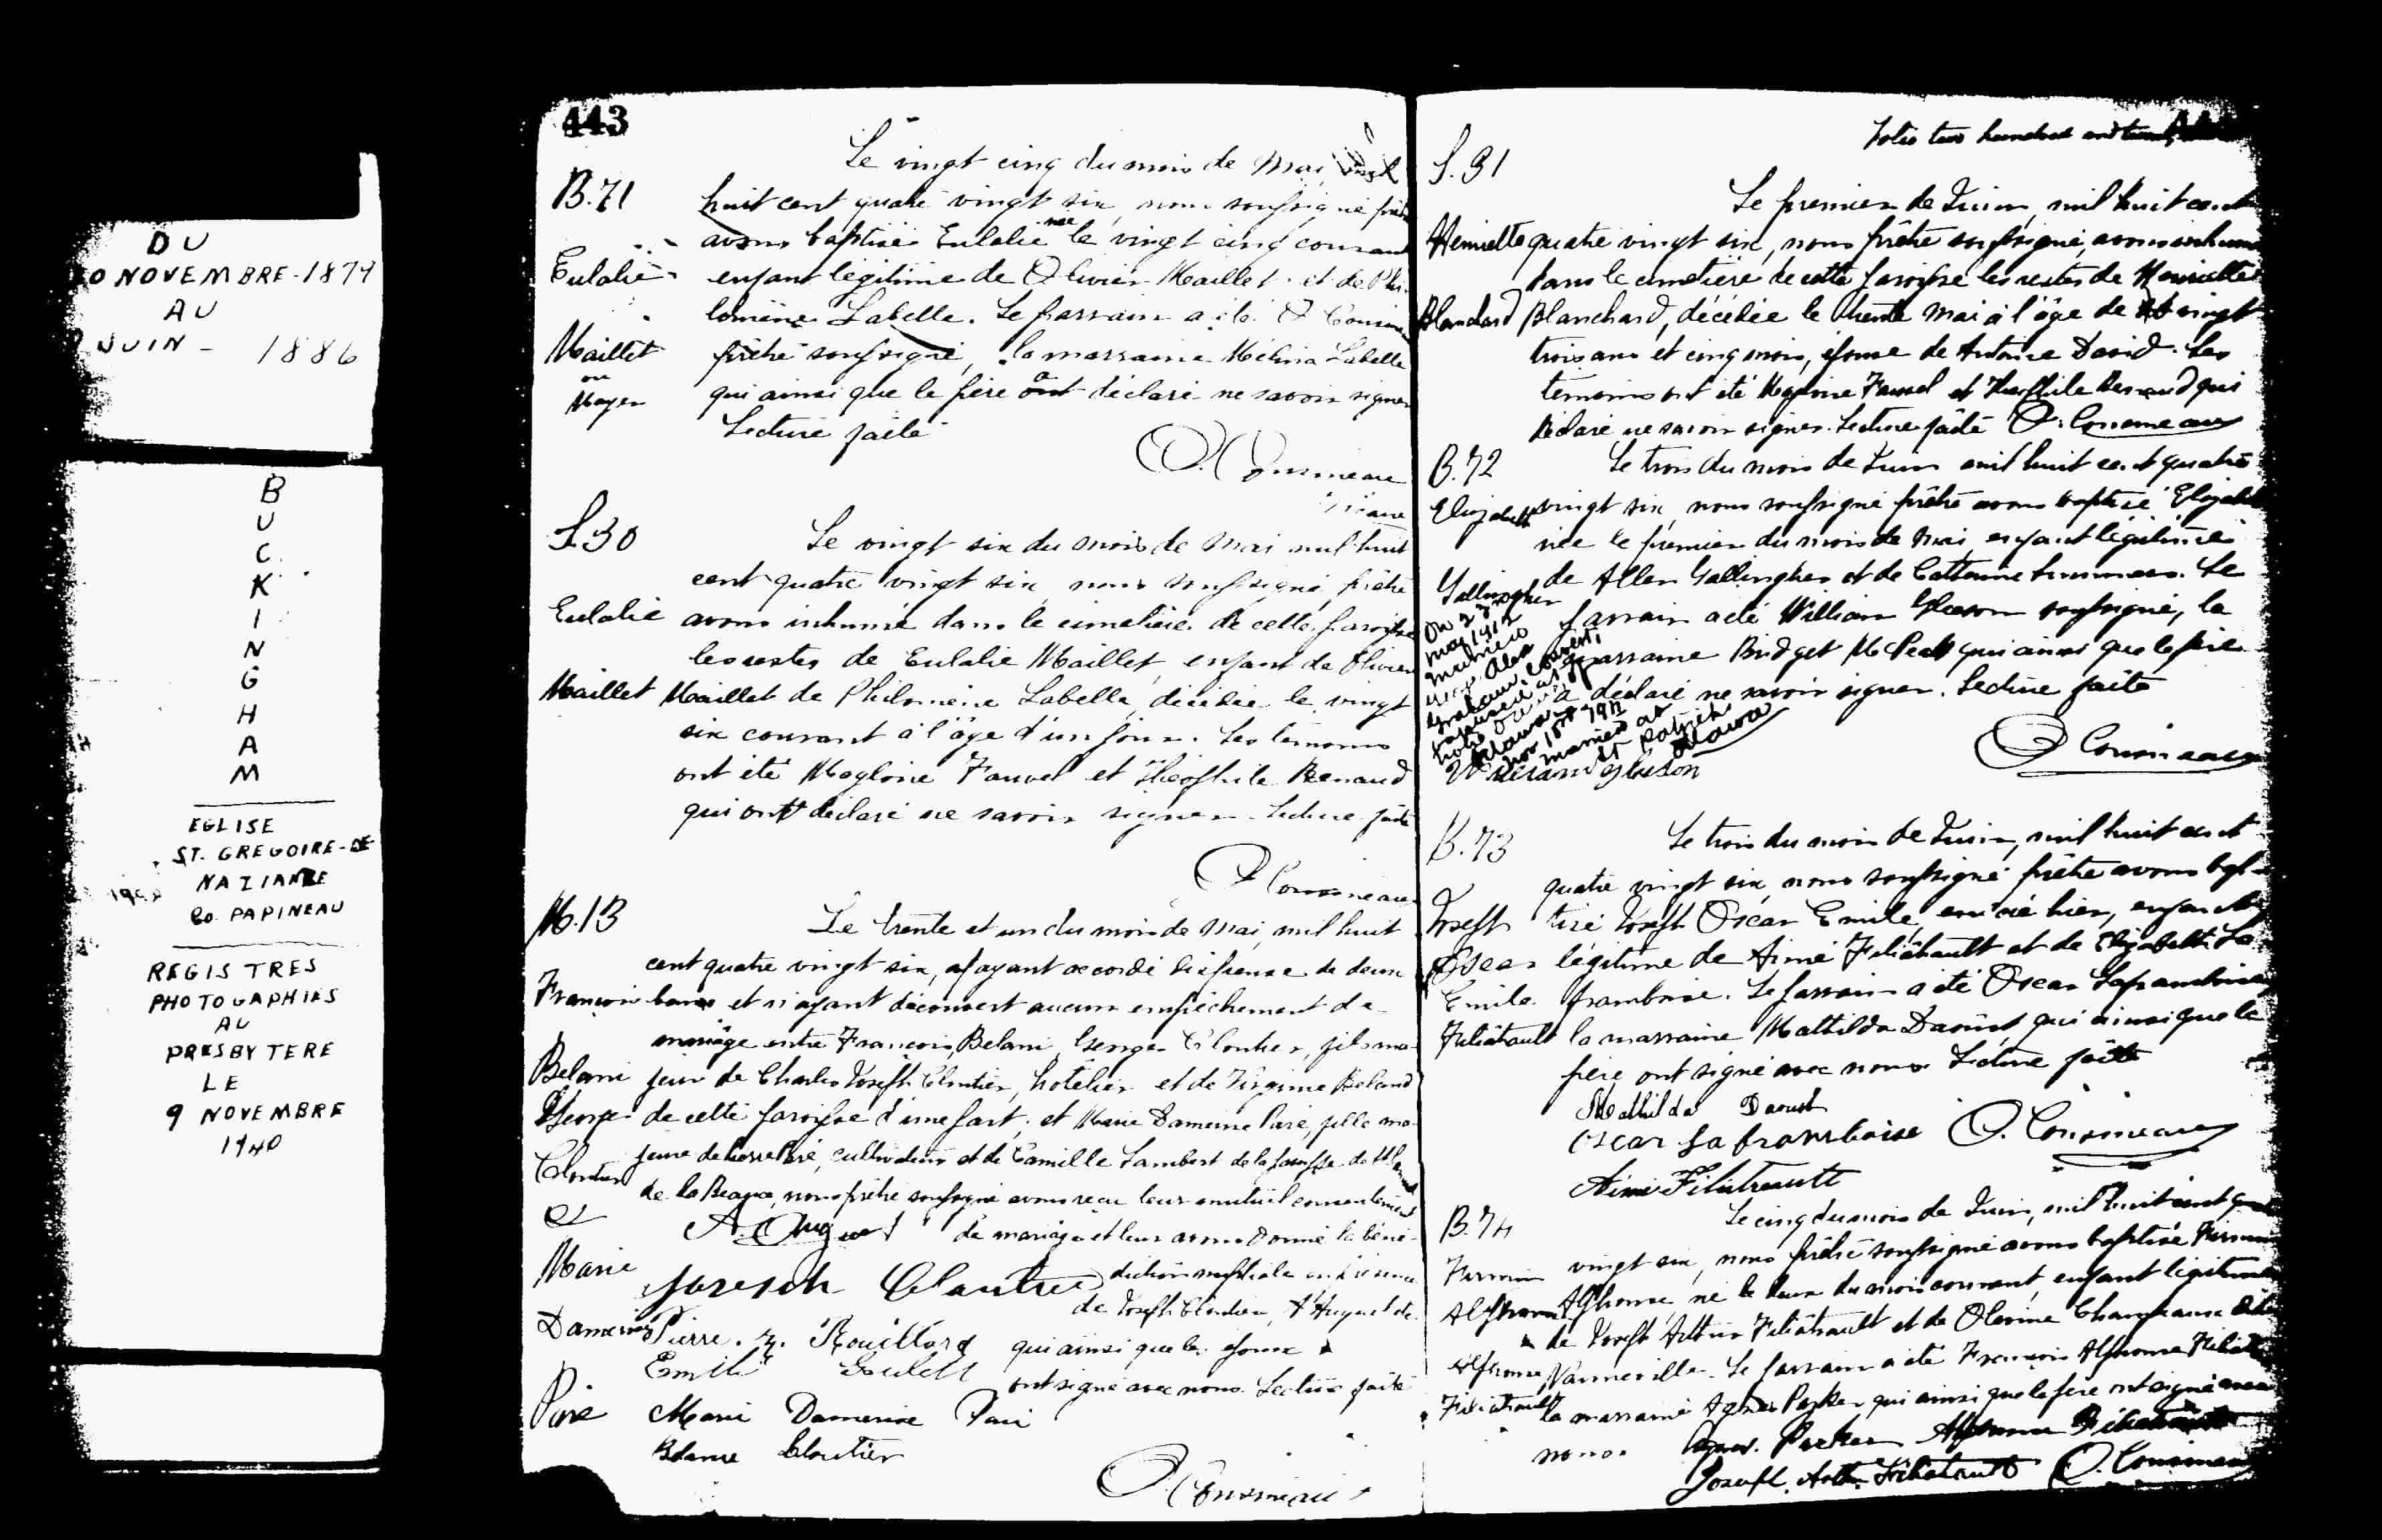 DU
NOVEMBRE - 1879
AU
JUIN - 1886
B
U
C
K
I
N
G
H
A
M
EGLISE
ST. GREGOIRE-DE
NAZIANZE
Co. PAPINEAU
REGISTRES
PHOTOGAPHIES
AU
PRESBYTERE
LE
9 NOVEMBRE
1940
443
Le vingt cinq du mois de Mai
B.71
huit cent quatre vingt six, nous soussigné prêtre
avons baptisé Eulalie née le vingt cinq courant
Eulalie
enfant légitime de Olivier Maillet et de Phi-
lomène Labelle. Le parrain a été O Cousineau
Maillet
prêtre soussigné, la marraine Mélina Labelle
ou
Mayer
qui ainsi que le père ont déclaré ne savoir signer
Lecture faite
O. Cousineau
S.30
Le vingt six du mois de Mai mil huit
cent quatre vingt six, nous soussigné, prêtre
Eulalie
avons inhumé dans le cimetière de cette paroisse
les restes de Eulalie Maillet, enfant de Olivier
Maillet
Maillet de Philomène Labelle, décédée le vingt
six courant à l'âge d'un jour. Les témoins
ont été Magloire Fauvel et Théophile Renaud
qui ont déclaré ne savoir signer. Lecture faite
O Cousineau
M.13
Le trente et un du mois de Mai, mil huit
cent quatre vingt six, ayant accordé dispense de deux
François
bans et n'ayant découvert aucun empêchement de
mariage entre François Belani George Cloutier, fils ma-
Belani
jeur de Charles Joseph Cloutier, hôtelier et de Virginie Beland
George
de cette paroisse d'une part, et Marie Damerine Paré, fille ma-
Cloutier
jeure de Pierre Paré, cultivateur et de Camille Lambert de la paroisse de
de la Beauce, nous prêtre soussigné avons reçu leur mutuel consentement
&
A. Huguet de mariage et leur avons donné la béné-
Marie
Joseph Cloutier diction nuptiale en présence
de Joseph Cloutier, A Huguet de
Damerine
Pierre. Z. Rouillard qui ainsi que les époux
Emile Goulet ont signé avec nous. Lecture faite
Paré
Marie Damerine Paré
Blanche Cloutier
O. Cousineau
Folio two hundred and
S.31
Le premier de Juin, mil huit cent
Henriette
quatre vingt six, nous prêtre soussigné, avons inhumé
dans le cimetière de cette paroisse les restes de Henriette
Blanchard
Blanchard, décédée le trente Mai à l'âge de vingt
trois ans et cinq mois, épouse de Antoine David. Les
témoins ont été Magloire Fauvel et Théophile Renaud qui
déclaré ne savoir signer. Lecture faite O. Cousineau
B.72
Le trois du mois de Juin mil huit cent quatre
Elizabeth
vingt six, nous soussigné prêtre avons baptisé Elizabeth
née le premier du mois de Mai, enfant légitime
Gallingher
de Allen Gallingher et de Catherine. Le
parrain a été William Gleeson soussigné, la
marraine Bridget qui ainsi que le père
a déclaré ne savoir signer. Lecture faite
On 2nd
May 1912
married
Alex
Graham, convert,
Nov 1st 1911
married at
St Patrick
Ottawa
William Gleeson
O Cousineau
B.73
Le trois du mois de Juin, mil huit cent
quatre vingt six, nous soussigné prêtre avons bap-
Joseph
tisé Joseph Oscar Emile, né hier, enfant
Oscar
légitime de Aimé Filiâtrault et de Elizabeth La-
Emile
framboise. Le parrain a été Oscar Laframboise
Filiâtrault
la marraine Mathilda Daoust, qui ainsi que le
père ont signé avec nous. Lecture faite
Mathilda Daoust
Oscar Laframboise O. Cousineau
Aimé Filiatreault
B.74
Le cinq du mois de Juin, mil huit cent quatre
Firmin
vingt six, nous prêtre soussigné avons baptisé Firmin
Alphonse
Alphonse né le deux du mois courant, enfant légitime
de Joseph Arthur Filiâtrault et de Olerine
Alphonse
Vanneville. Le parrain a été François Alphonse Filiâtrault
Filiatrault
la marraine Agnes Parker qui ainsi que le père ont signé avec
nous. Agnes. Parker Alphonse Filiatrault
Joseph. Arth. Filiatrault O. Cousineau